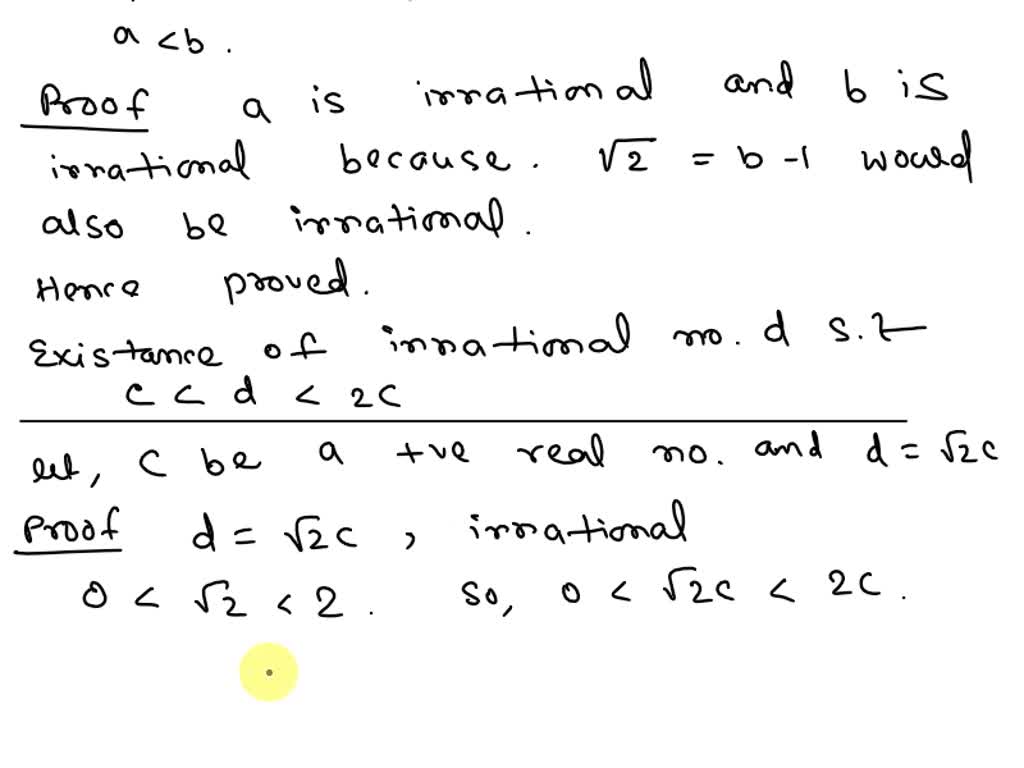 a < b .
Proof a is irrational and b is
irrational because. √2 = b -1 would
also be irrational.
Hence proved.
Existance of irrational no. d s.t
c < d < 2c
let, c be a +ve real no. and d = √2c
Proof d = √2c , irrational
0 < √2 < 2 . so, 0 < √2c < 2c .